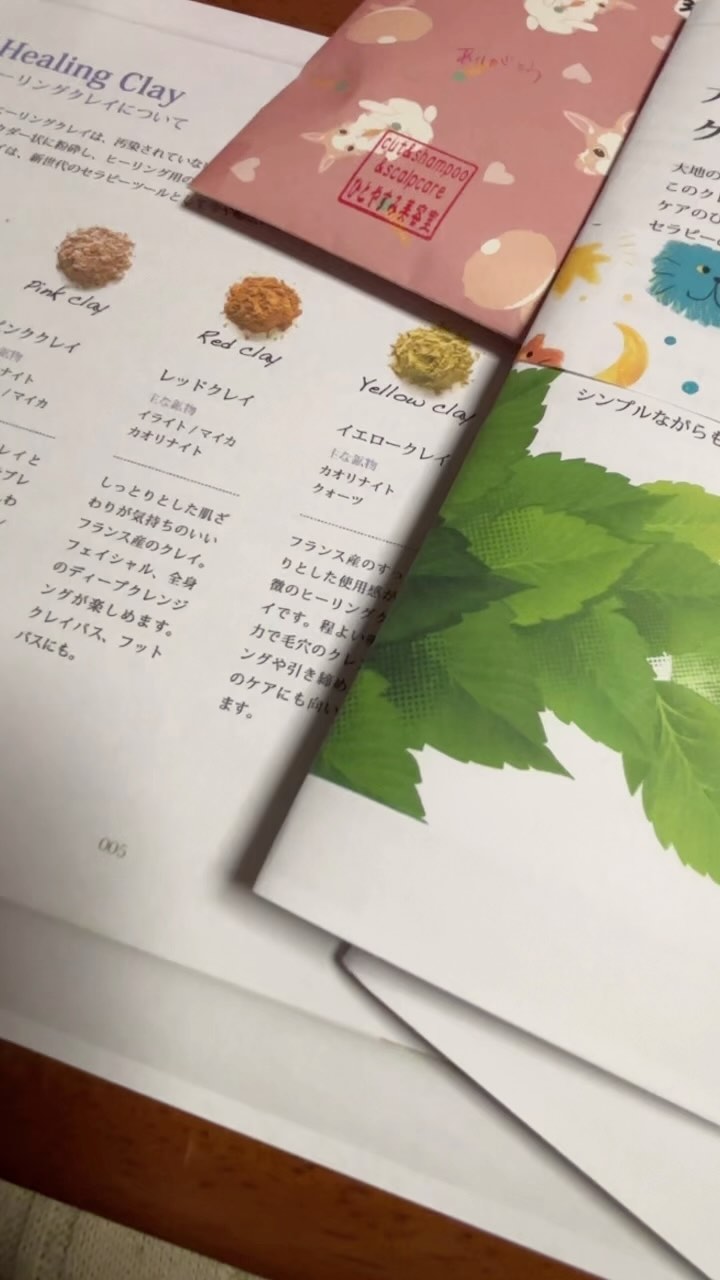 Healing Clay
ーリングクレイについて
ーリングクレイは、汚染されていな
ウダー状に粉砕し、ヒーリング用の
イは、新世代のセラピーツールと
Pink clay
ンククレイ
鉱物
ナイト
/マイカ
レイと
プレ
わ
Red clay
レッドクレイ
主な鉱物
イライト/マイカ
カオリナイト
しっとりとした肌ざ
わりが気持ちのいい
フランス産のクレイ。
フェイシャル、全身
のディープクレンジ
ングが楽しめます。
クレイパス、フット
バスにも。
Yellow clay
イエロークレイ
主な鉱物
カオリナイト
クォーツ
フランス産のすっ
りとした使用感が
徴のヒーリングク
イです。程よい
力で毛穴のクレ
ングや引き締め
のケアにも向い
ます。
005
ありがとう
cut&shampoo
&scalpcare
ひとやすみ美容室
ク
大地の
このク
ケアのひ
セラピー
シンプルながらも